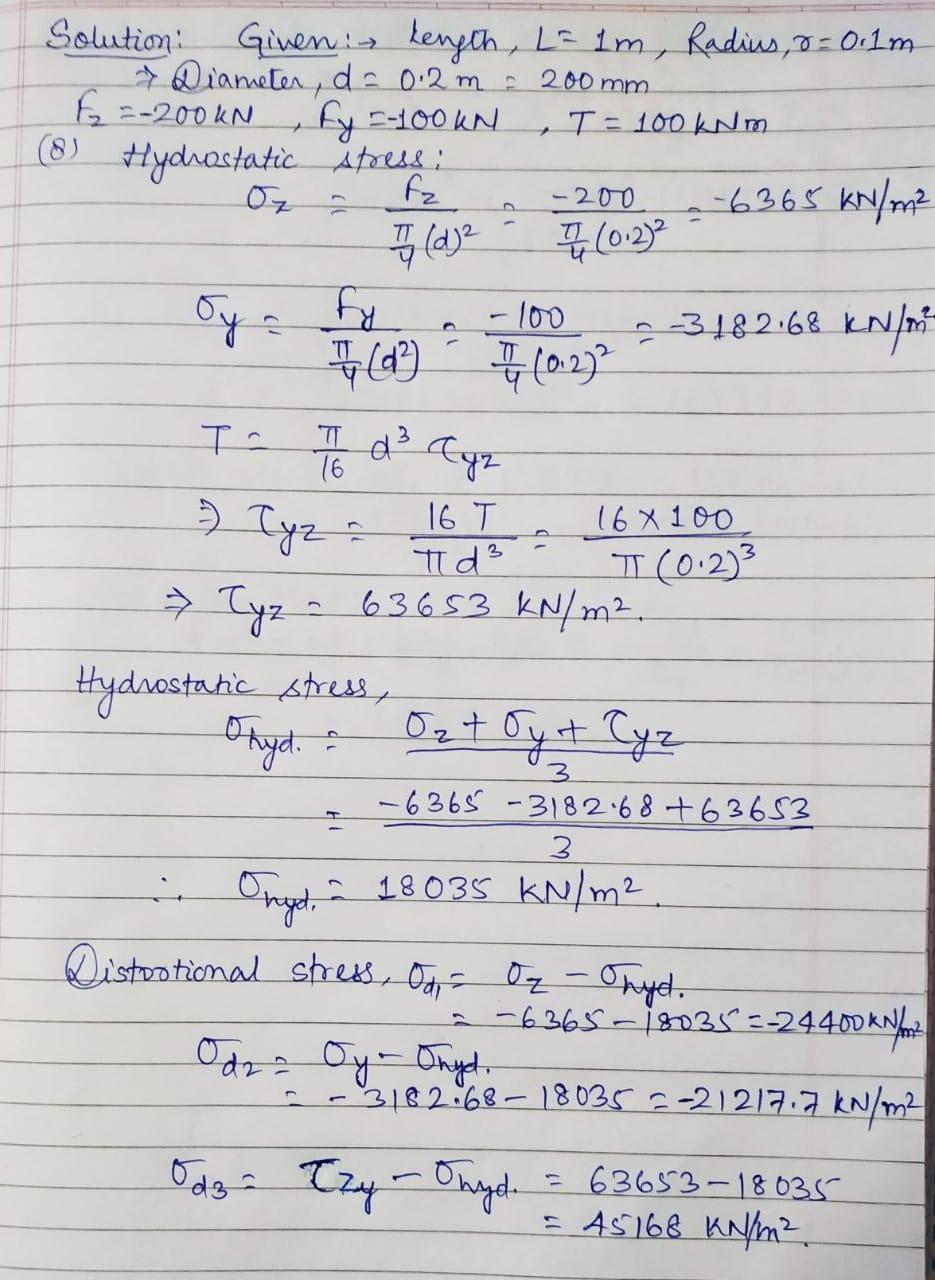 Solution: Given:→ Length, L = 1m, Radius, r = 0.1m
⇒ Diameter, d = 0.2 m = 200mm
Fz = -200 kN , Fy = -100 kN , T = 100 kNm
(8) Hydrostatic stress:
σz = Fz / (π/4 (d)²) = -200 / (π/4 (0.2)²) = -6365 KN/m²
σy = Fy / (π/4 (d²)) = -100 / (π/4 (0.2)²) = -3182.68 KN/m²
T = π/16 d³ τyz
⇒ τyz = 16 T / πd³ = 16 X 100 / π(0.2)³
⇒ τyz = 63653 KN/m².
Hydrostatic stress,
σhyd. = (σz + σy + τyz) / 3
= (-6365 - 3182.68 + 63653) / 3
∴ σhyd. = 18035 KN/m².
Distortional stress, σd1 = σz - σhyd.
= -6365 - 18035 = -24400 KN/m²
σd2 = σy - σhyd.
= -3182.68 - 18035 = -21217.7 KN/m²
σd3 = τzy - σhyd. = 63653 - 18035
= 45168 KN/m².